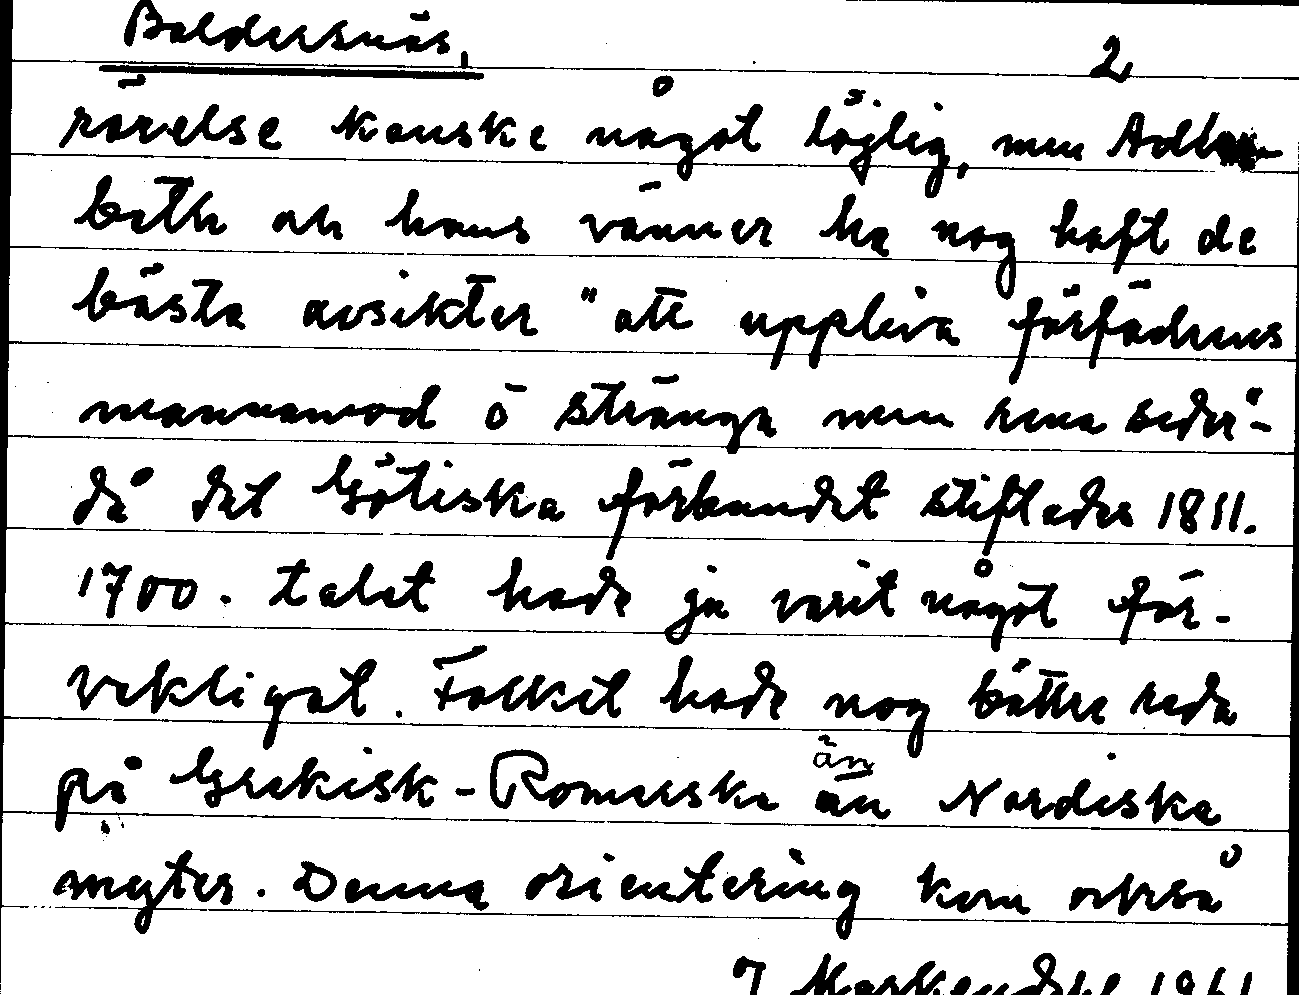 Baldersnäs. 2
rörelse kanske något löjlig, men Adler-
beth och hans vänner ha nog haft de
bästa avsikter "att uppliva förfädrens
mannamod ō stränga men rena seder"-
då det Götiska förbundet stiftades 1811.
1700-talet hade ju varit något för-
vekligat. Folket hade nog bättre reda
än
på Grekisk-Romerska än Nordiska
myter. Denna orientering kom också